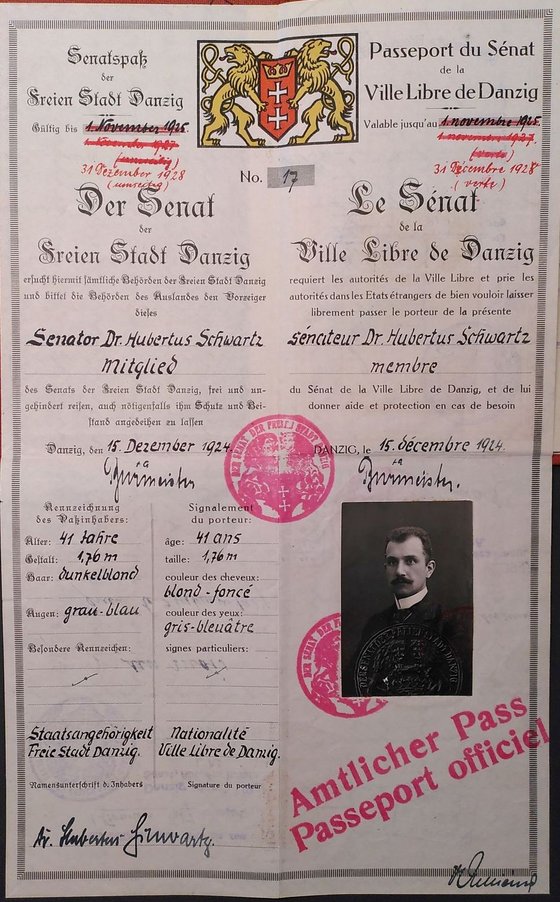 Senatspaß
der
Freien Stadt Danzig
Gültig bis 1. November 1925.
31 Dezember 1928
Passeport du Sénat
de la
Ville Libre de Danzig
Valable jusqu'au 1. novembre 1925.
1. novembre 1927.
31 Décembre 1928
No. 17
Der Senat
der
Freien Stadt Danzig
ersucht hiermit sämtliche Behörden der Freien Stadt Danzig
und bittet die Behörden des Auslandes den Vorzeiger
dieses
Senator Dr. Hubertus Schwartz
Mitglied
des Senats der Freien Stadt Danzig, frei und un-
gehindert reisen, auch nötigenfalls ihm Schutz und Bei-
stand angedeihen zu lassen
Danzig, den 15. Dezember 1924.
Le Sénat
de la
Ville Libre de Danzig
requiert les autorités de la Ville Libre et prie les
autorités dans les Etats étrangers de bien vouloir laisser
librement passer le porteur de la présente
sénateur Dr. Hubertus Schwartz
membre
du Sénat de la Ville Libre de Danzig, et de lui
donner aide et protection en cas de besoin
DANZIG, le 15. décembre 1924.
Kennzeichnung
des Paßinhabers:
Alter: 41 Jahre
Gestalt: 1,76 m
Haar: dunkelblond
Augen: grau-blau
Besondere Kennzeichen:
Staatsangehörigkeit
Freie Stadt Danzig.
Namensunterschrift d. Inhabers
Signalement
du porteur:
âge: 41 ans
taille: 1,76 m
couleur des cheveux:
blond-foncé
couleur des yeux:
gris-bleuâtre
signes particuliers:
Nationalité
Ville Libre de Danzig.
Signature du porteur
Dr. Hubertus Schwartz.
Amtlicher Pass
Passeport officiel